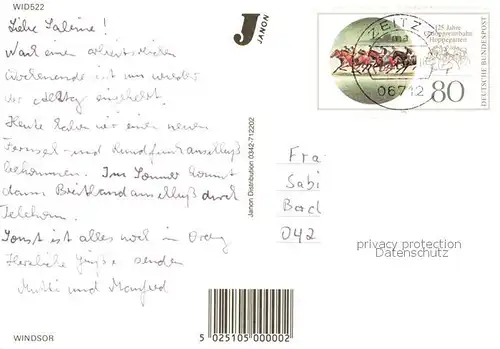 WID522
Liebe Sabine!
Nach einem arbeitsreichen
Wochenende ist uns wieder
der Alltag eingekehrt.
Heute haben wir einen neuen
Fernseh- und Rundfunkanschluß
bekommen. Im Sommer kommt
dann Breitbandanschluß durch
Telekom.
Sonst ist alles noch in Ordng
Herzliche Grüße senden
Mutti und Manfred
WINDSOR
J
JANON
Janon Distribution 0342-712202
5 025105 000002
ZEITZ
06712
125 Jahre
Galopprennbahn
Hoppegarten
80
DEUTSCHE BUNDESPOST
Fra
Sabi
042
privacy protection
Datenschutz